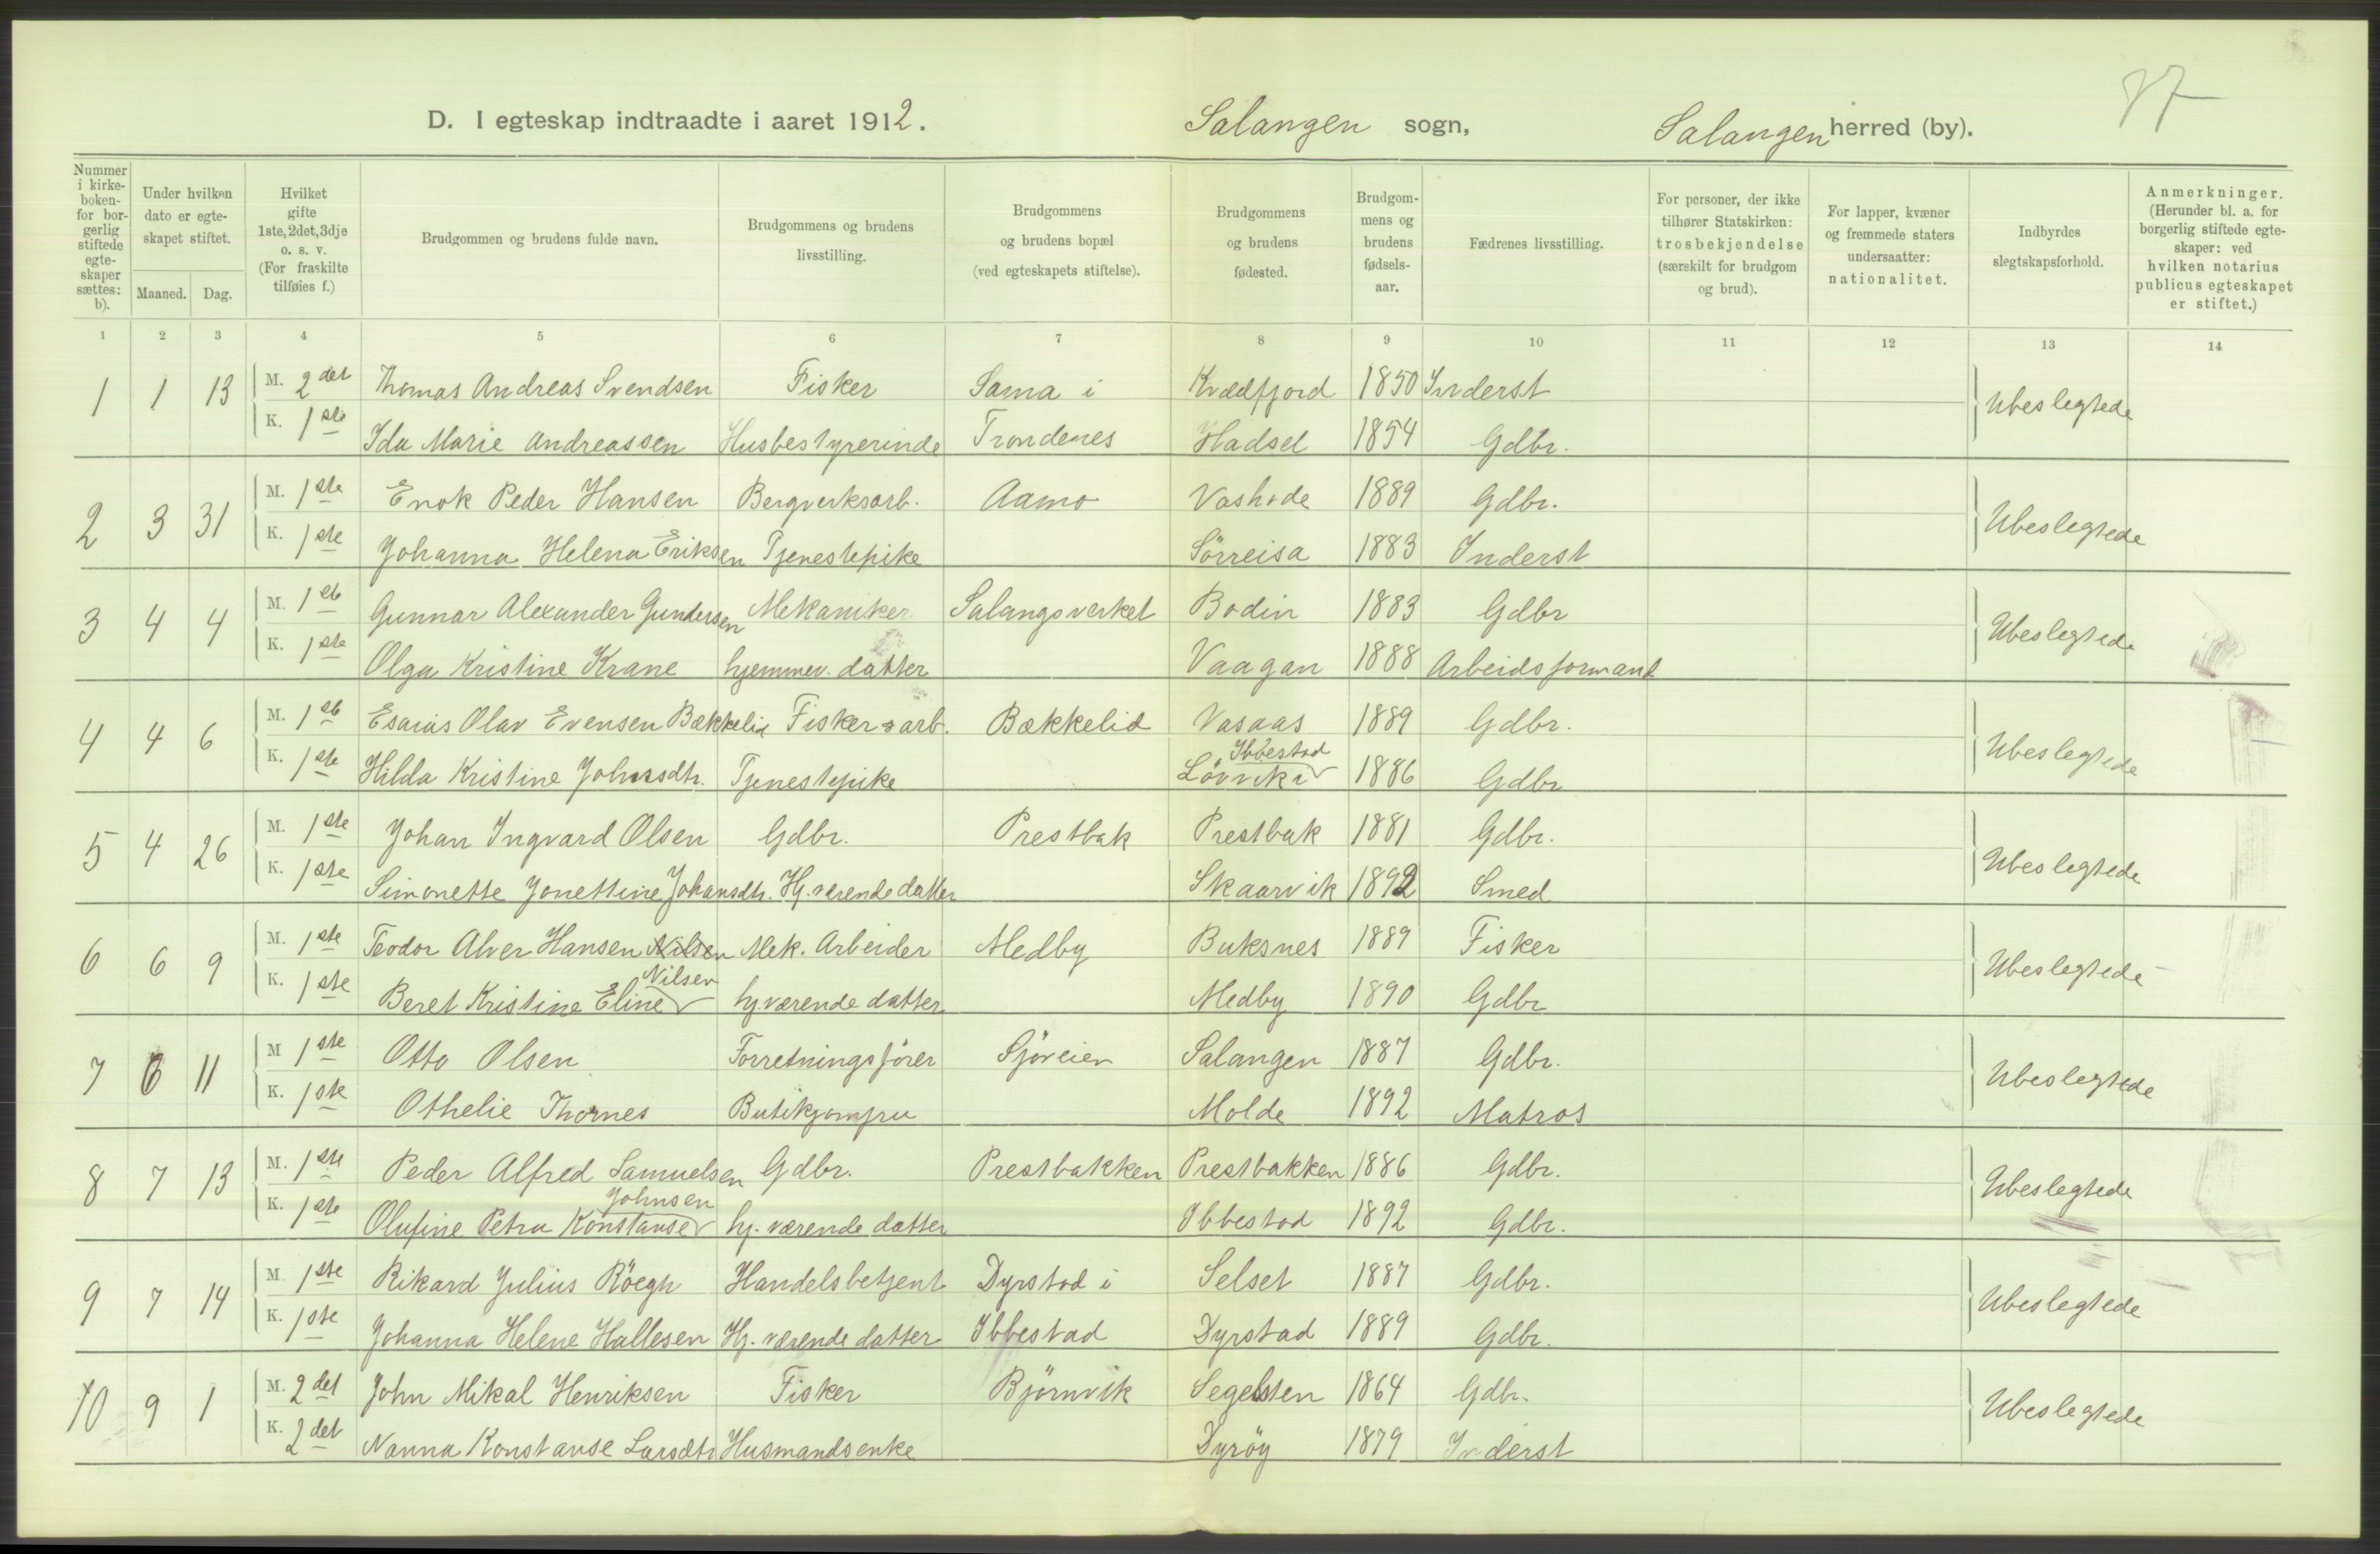 D. I egteskap indtraadte i aaret 1912. Salangen sogn, Salangen herred (by). 77
Nummer i kirke-boken- for bor-gerlig stiftede egte-skaper sættes: b).
Under hvilken dato er egte-skapet stiftet.
Maaned. Dag.
Hvilket gifte 1ste, 2det, 3dje o. s. v. (For fraskilte tilføies f.)
Brudgommen og brudens fulde navn.
Brudgommens og brudens livsstilling.
Brudgommens og brudens bopæl (ved egteskapets stiftelse).
Brudgommens og brudens fødested.
Brudgom-mens og brudens fødsels-aar.
Fædrenes livsstilling.
For personer, der ikke tilhører Statskirken: trosbekjendelse (særskilt for brudgom og brud).
For lapper, kvæner og fremmede staters undersaatter: nationalitet.
Indbyrdes slegtskapsforhold.
Anmerkninger. (Herunder bl. a. for borgerlig stiftede egte-skaper: ved hvilken notarius publicus egteskapet er stiftet.)
1 2 3 4 5 6 7 8 9 10 11 12 13 14
1 1 13 M. 2det Thomas Andreas Svendsen Fisker Sama i Kvædfjord 1850 Inderst Ubeslegtede
K. 1ste Ida Marie Andreassen Husbestyrerinde Trondenes Hadsel 1854 Gdbr.
2 3 31 M. 1ste Enok Peder Hansen Bergverksarb. Aamo Vashode 1889 Gdbr. Ubeslegtede
K. 1ste Johanna Helena Eriksen Tjenestepike Sörreisa 1883 Inderst
3 4 4 M. 1ste Gunnar Alexander Gundersen Mekaniker Salangsverket Bodin 1883 Gdbr Ubeslegtede
K. 1ste Olga Kristine Krane hjemmev. datter Vaagan 1888 Arbeidsformand
4 4 6 M. 1ste Esaias Olav Evensen Bækkelid Fisker & arb. Bækkelid Vasaas 1889 Gdbr. Ubeslegtede
Ibbestad
K. 1ste Hilda Kristine Johnsdtr. Tjenestepike Lövvik i 1886 Gdbr
5 4 26 M. 1ste Johan Ingvard Olsen Gdbr. Prestbak Prestbak 1881 Gdbr. Ubeslegtede
K. 1ste Simonette Jonettine Johansdtr. Hj. værende datter Skaarvik 1892 Smed
6 6 9 M. 1ste Teodor Alver Hansen Nilsen Mek. Arbeider Medby Buksnes 1889 Fisker Ubeslegtede
Nilsen
K. 1ste Beret Kristine Eline hj. værende datter Medby 1890 Gdbr
7 6 11 M 1ste Otto Olsen Forretningsförer Sjöveien Salangen 1887 Gdbr. Ubeslegtede
K. 1ste Othelie Thornes Butikjomfru Molde 1892 Matros
8 7 13 M. 1ste Peder Alfred Samuelsen Gdbr. Prestbakken Prestbakken 1886 Gdbr. Ubeslegtede
Johnsen
K. 1ste Olufine Petra Konstanse hj. værende datter Ibbestad 1892 Gdbr.
9 7 14 M. 1ste Rikard Julius Röegh Handelsbetjent Dyrstad i Selset 1887 Gdbr. Ubeslegtede
K. 1ste Johanna Helene Hallesen Hj. værende datter Ibbestad Dyrstad 1889 Gdbr.
10 9 1 M. 2det John Mikal Henriksen Fisker Björnvik Segelsten 1864 Gdbr. Ubeslegtede
K. 2det Nanna Konstanse Larsdtr Husmandsenke Dyröy 1879 Inderst